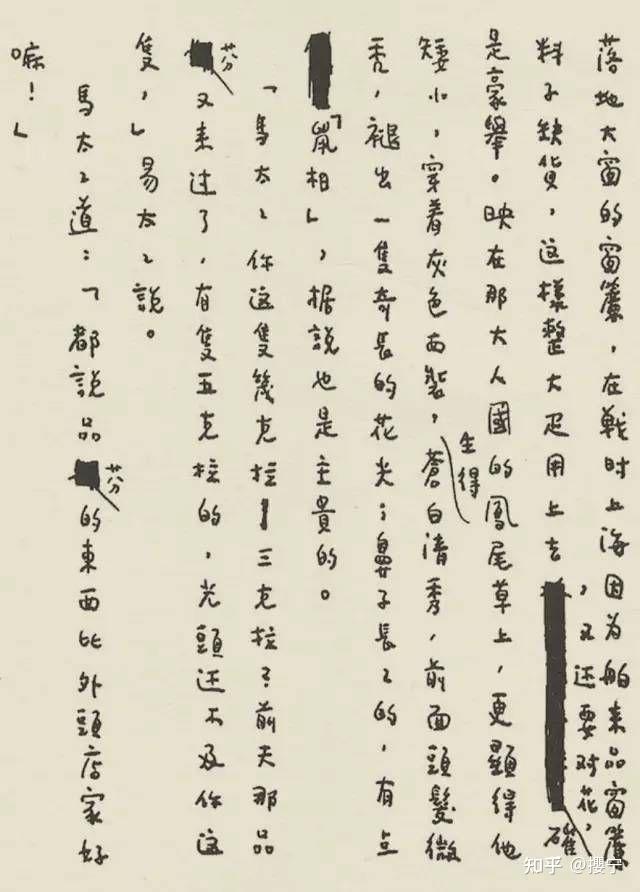 落地大窗的窗簾，在戰時上海因为舶来品窗簾
料子缺貨，这樣整大疋用上去，又还要对花，確
是豪舉。映在那大人國的鳳尾草上，更顯得他
矮小，穿着灰色西裝，生得蒼白清秀，前面頭髮微
禿，褪出一隻奇長的花尖；鼻子長々的，有点
「鼠相」，据說也是主貴的。
「馬太々你这隻幾克拉—三克拉？前天那品
芬又来过了，有隻五克拉的，光頭还不及你这
隻，」易太々說。
馬太々道：「都說品芬的東西比外頭店家好
嘛！」
知乎 @攖宁